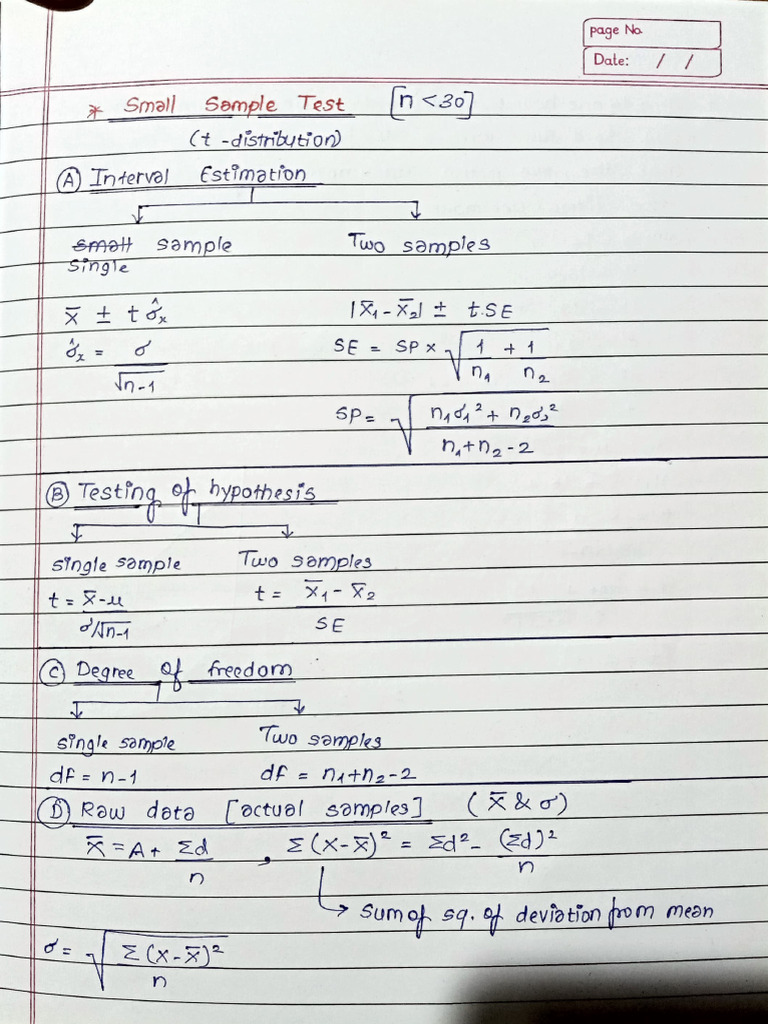 page No.
Date: / /
* Small Sample Test [n < 30]
(t - distribution)
Ⓐ Interval Estimation
small sample Two samples
single
x̄ ± t σ̂x |x̄1 - x̄2| ± t.SE
σ̂x = σ/√n-1 SE = SP × √(1/n1 + 1/n2)
SP = √(n1σ1² + n2σ2²/n1+n2-2)
Ⓑ Testing of hypothesis
single sample Two samples
t = x̄-μ/σ/√n-1 t = x̄1 - x̄2/SE
Ⓒ Degree of freedom
single sample Two samples
df = n-1 df = n1+n2-2
Ⓓ Raw data [actual samples] (x̄ & σ)
x̄ = A + Σd/n , Σ(x-x̄)² = Σd² - (Σd)²/n
sum of sq. of deviation from mean
σ = √(Σ(x-x̄)²/n)